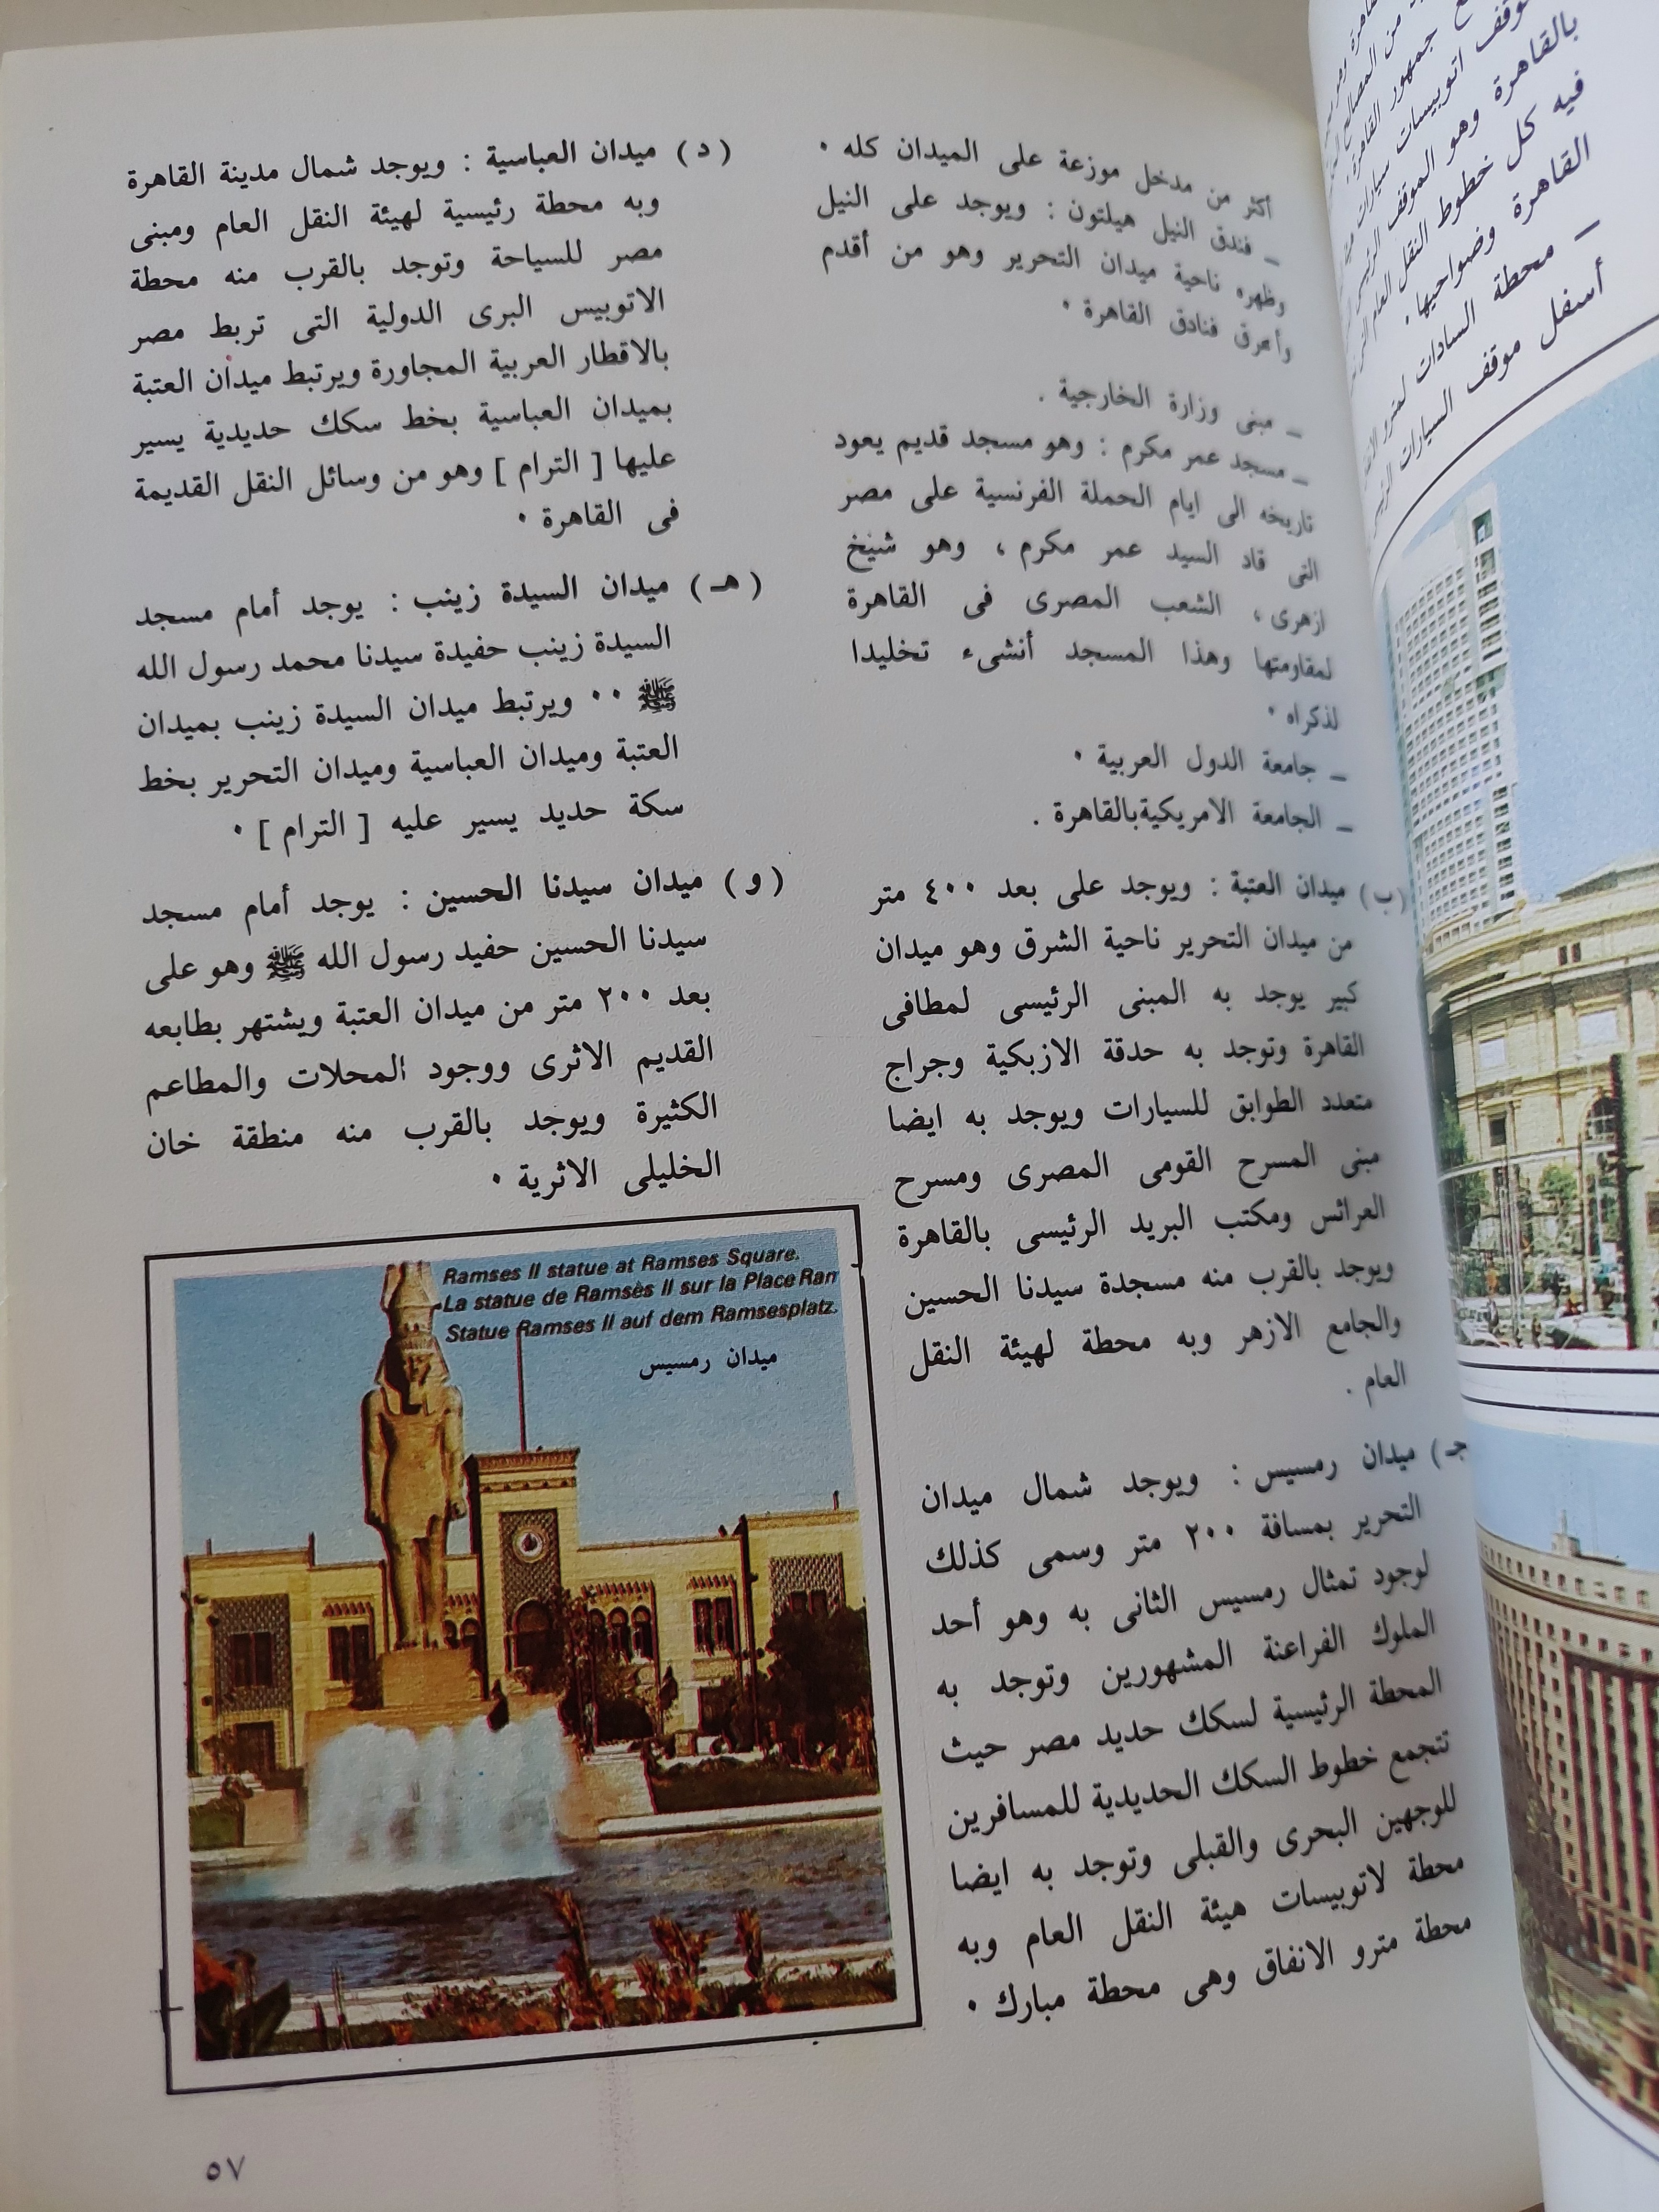 أكثر من مدخل موزعة على الميدان كله .
_ فندق النيل هيلتون : ويوجد على النيل
وظهره ناحية ميدان التحرير وهو من أقدم
وأعرق فنادق القاهرة .
_ مبنى وزارة الخارجية .
_ مسجد عمر مكرم : وهو مسجد قديم يعود
تاريخه الى ايام الحملة الفرنسية على مصر
التى قاد السيد عمر مكرم ، وهو شيخ
ازهرى ، الشعب المصرى فى القاهرة
لمقاومتها وهذا المسجد أنشىء تخليدا
لذكراه .
_ جامعة الدول العربية .
_ الجامعة الامريكيةبالقاهرة .
(ب) ميدان العتبة : ويوجد على بعد ٤٠٠ متر
من ميدان التحرير ناحية الشرق وهو ميدان
كبير يوجد به المبنى الرئيسى لمطافى
القاهرة وتوجد به حدقة الازبكية وجراج
متعدد الطوابق للسيارات ويوجد به ايضا
مبنى المسرح القومى المصرى ومسرح
العرائس ومكتب البريد الرئيسى بالقاهرة
ويوجد بالقرب منه مسجدة سيدنا الحسين
والجامع الازهر وبه محطة لهيئة النقل
العام .
جـ) ميدان رمسيس : ويوجد شمال ميدان
التحرير بمسافة ٢٠٠ متر وسمى كذلك
لوجود تمثال رمسيس الثانى به وهو أحد
الملوك الفراعنة المشهورين وتوجد به
المحطة الرئيسية لسكك حديد مصر حيث
تتجمع خطوط السكك الحديدية للمسافرين
للوجهين البحرى والقبلى وتوجد به ايضا
محطة لاتوبيسات هيئة النقل العام وبه
محطة مترو الانفاق وهى محطة مبارك .
(د) ميدان العباسية : ويوجد شمال مدينة القاهرة
وبه محطة رئيسية لهيئة النقل العام ومبنى
مصر للسياحة وتوجد بالقرب منه محطة
الاتوبيس البرى الدولية التى تربط مصر
بالاقطار العربية المجاورة ويرتبط ميدان العتبة
بميدان العباسية بخط سكك حديدية يسير
عليها [ الترام ] وهو من وسائل النقل القديمة
فى القاهرة .
(هـ) ميدان السيدة زينب : يوجد أمام مسجد
السيدة زينب حفيدة سيدنا محمد رسول الله
ﷺ .. ويرتبط ميدان السيدة زينب بميدان
العتبة وميدان العباسية وميدان التحرير بخط
سكة حديد يسير عليه [ الترام ] .
(و) ميدان سيدنا الحسين : يوجد أمام مسجد
سيدنا الحسين حفيد رسول الله ﷺ وهو على
بعد ٢٠٠ متر من ميدان العتبة ويشتهر بطابعه
القديم الاثرى ووجود المحلات والمطاعم
الكثيرة ويوجد بالقرب منه منطقة خان
الخليلى الاثرية .
Ramses II statue at Ramses Square.
La statue de Ramsès II sur la Place Ram
Statue Ramses II auf dem Ramsesplatz.
ميدان رمسيس
٥٧
جمهور القاهرة
موقف اتوبيسات سيارات
بالقاهرة وهو الموقف الرئيسى
فيه كل خطوط النقل العام
القاهرة وضواحيها .
_ محطة السادات لمترو
أسفل موقف السيارات